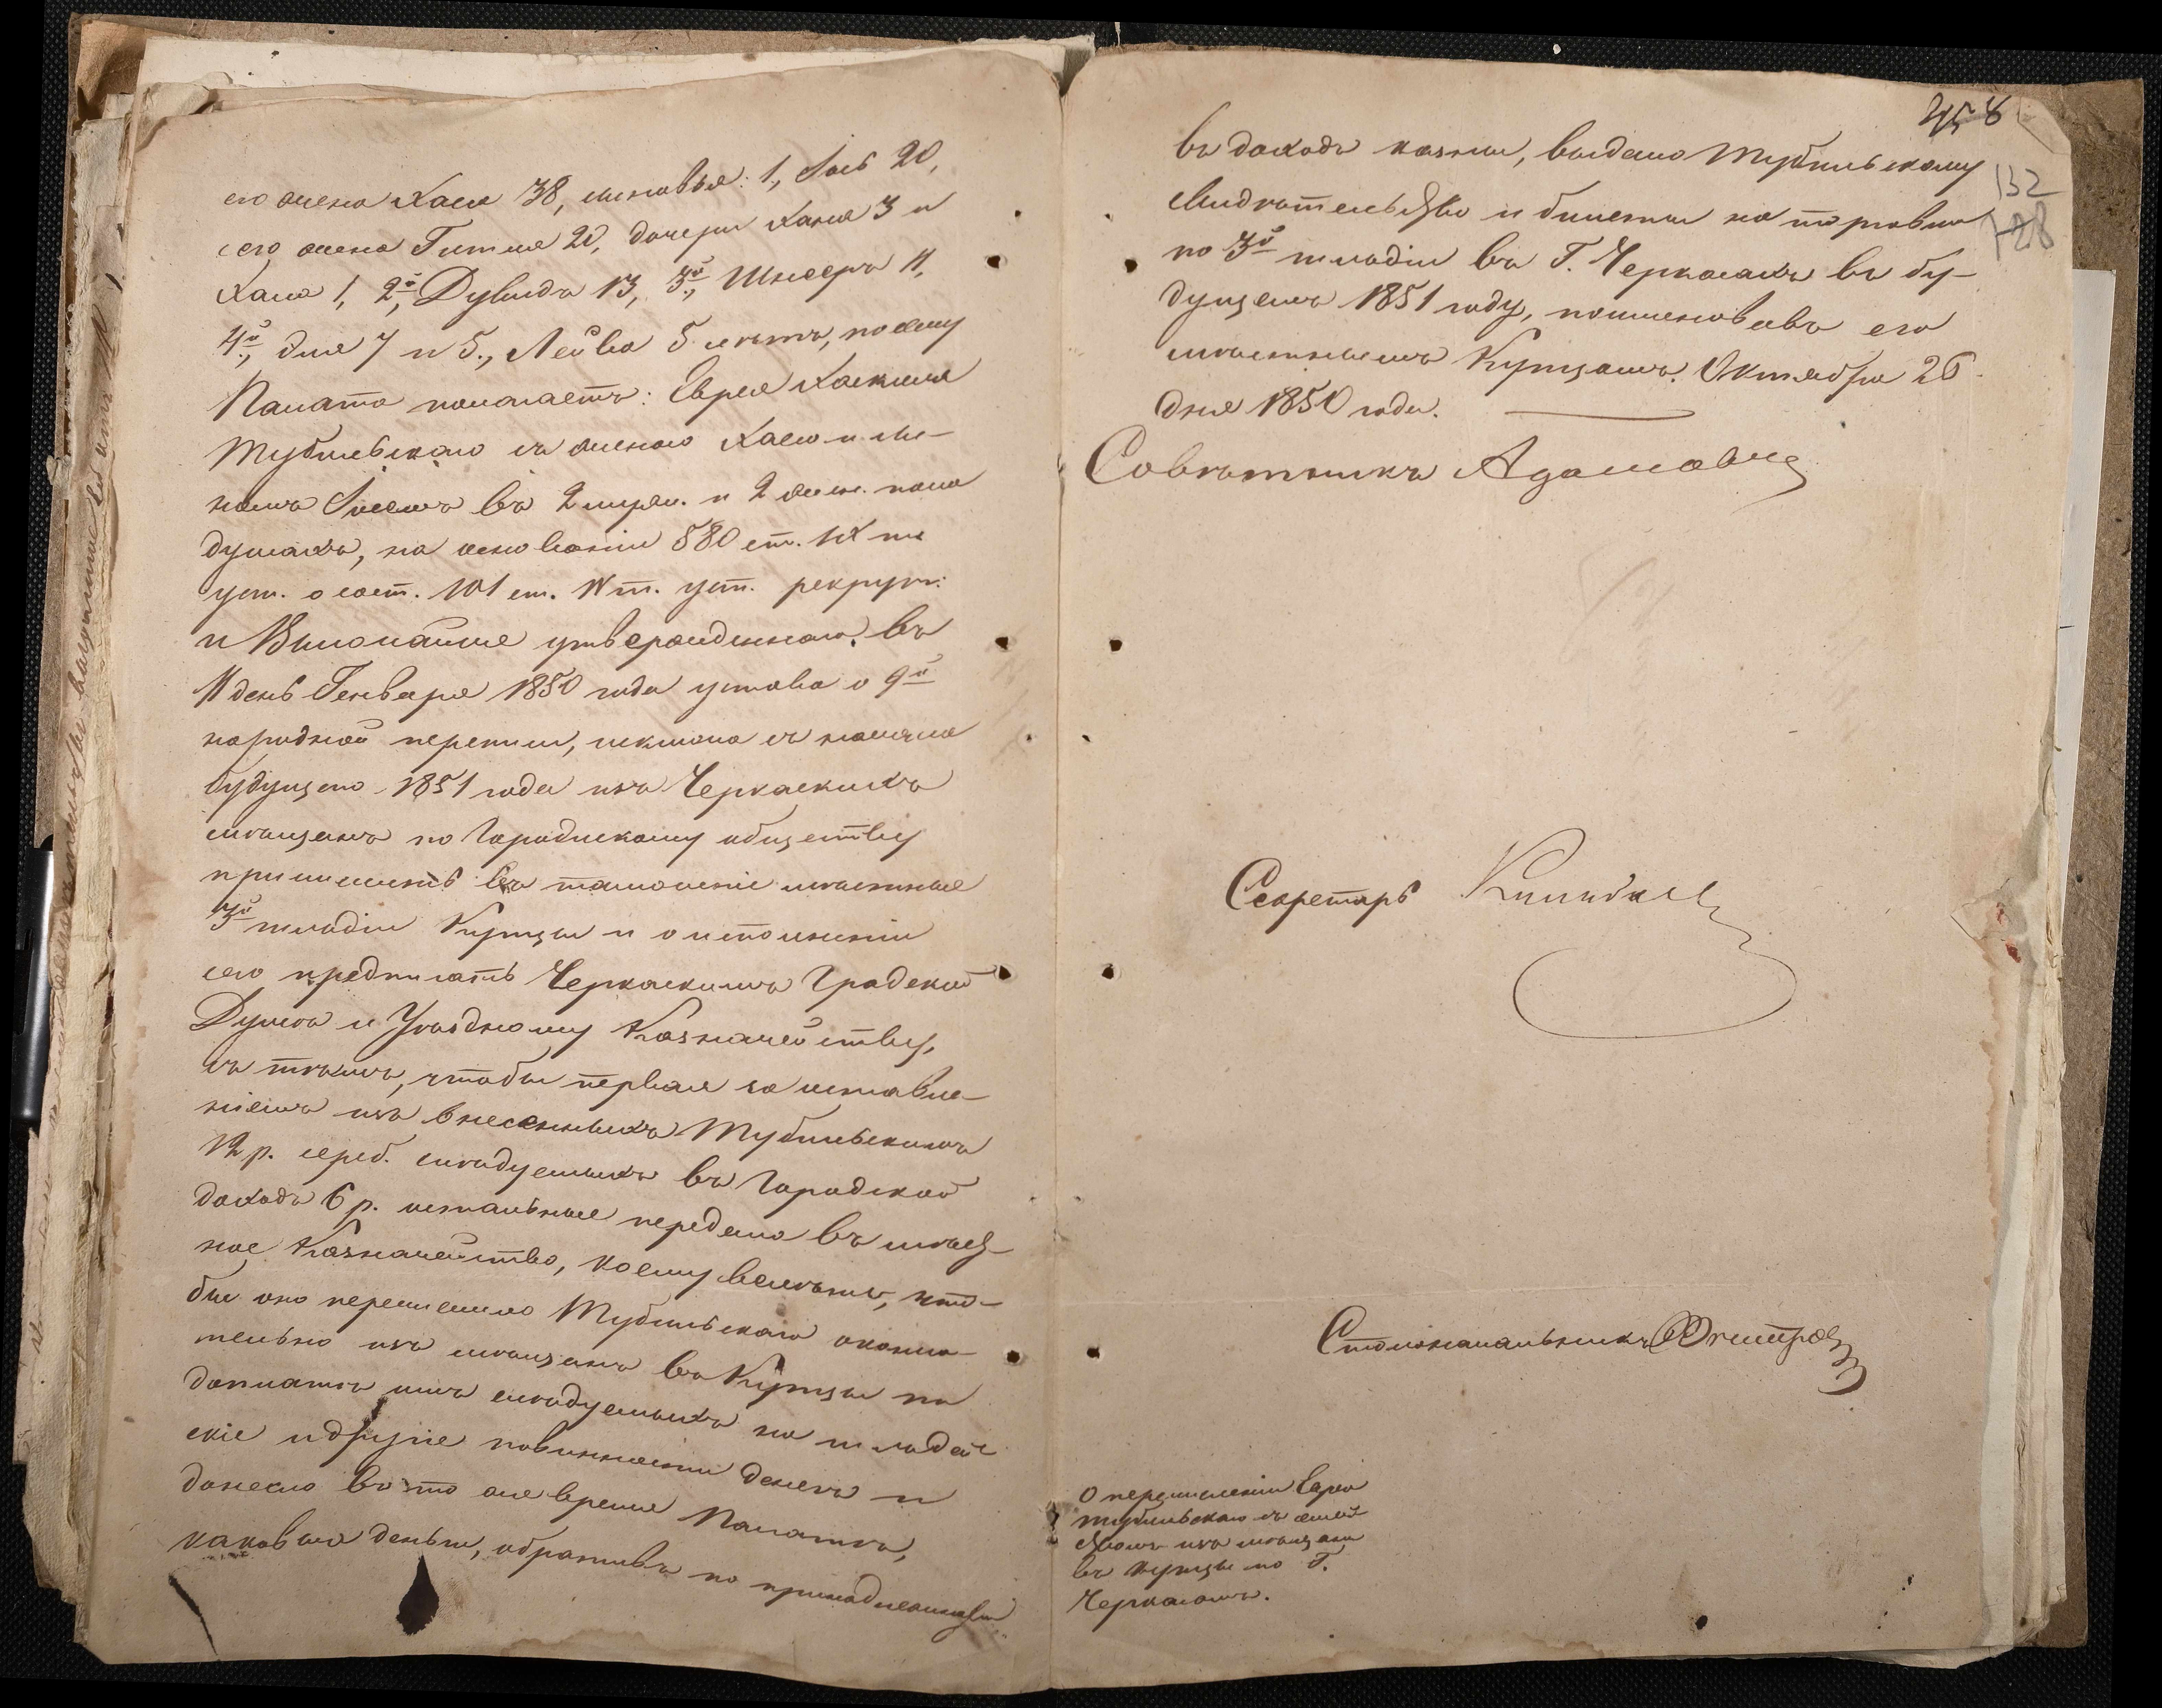 его жена Хася 38, сыновья: 1, Іось 20,
его жена Гитля 20, дочери Хана 3 и
Хася 1, 2й, Дувидъ 13, 3й, Шнееръ 11,
4й, 7 и 5., Лейба 5 лѣтъ, посему
Палата полагаетъ: Еврея Хаскеля
Тубильскаго съ женою Хасею и сы-
номъ Іосемъ въ 2 муж. и 2 жен. пола
душахъ, на основаніи 580 ст. IX т.
уст. о сост. 101 ст. IV т. уст. рекрут:
и Высочайше утвержденнаго, въ
11 день Генваря 1850 года устава о 9й
народной переписи, исключа съ начала
будущаго 1851 года изъ Черкаскихъ
мѣщанъ по Городискому обществу
причислить въ тамошніе мѣстные
3й гильдіи Купцы и о исполненіи
сего предписать Черкаскимъ Градской
Думѣ и Уѣздному Казначейству,
съ тѣмъ, чтобы первая за оставле-
ніемъ изъ внесенныхъ Тубильскимъ
12 р. сереб. слѣдуемыхъ въ Городской
доходъ 6 р. остальные передала въ мѣст-
ное Казначейство, коему велѣть, что-
бы оно перечислило Тубильскаго оконча-
тельно изъ мѣщанъ въ Купцы по
доплатѣ имъ слѣдуемыхъ на гильдей-
скіе и другіе повинности денегъ и
донесло въ то же время Палатѣ,
каковыя деньги, обративъ по принадлежности
458
въ доходъ казны, выдало Тубильскому
132
свидѣтельство и билеты на торговлю
128
по 3й гильдіи въ Г. Черкасахъ въ бу-
дущемъ 1851 году, поименовавъ его
мѣстнымъ Купцомъ. Октября 26
дня 1850 года.
Совѣтникъ Адамовъ
Секретарь
Столоначальникъ
О перечисленіи Еврея
Тубильскаго съ семей-
ствомъ изъ мѣщанъ
въ купцы по Г.
Черкасамъ.